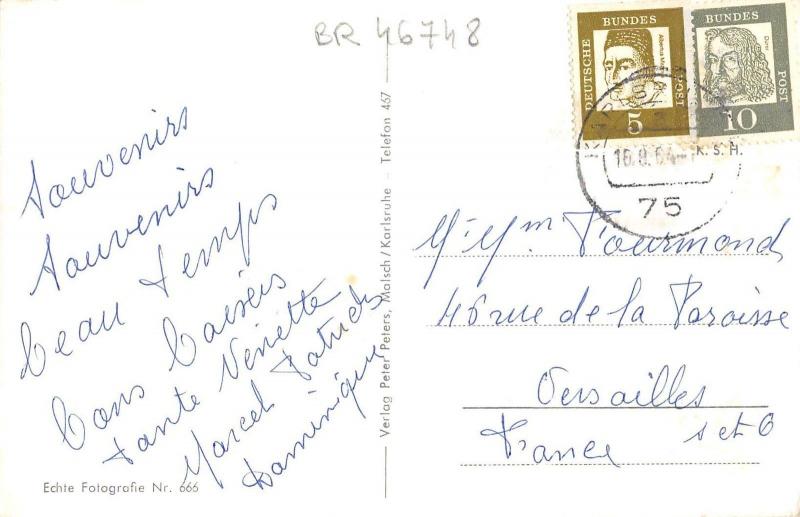 BR 46748
DEUTSCHE BUNDES POST
Albertus
5
BUNDES POST
10
16.9.64
K. S. H.
75
Souvenirs
Souvenirs
beau temps
bons baisers
tante Ninette
Marcel Patrick
Dominique
Echte Fotografie Nr. 666
Verlag Peter Peters, Malsch/Karlsruhe - Telefon 467
M. Mm Fourmond
46 rue de la Paroisse
Versailles
France S et O